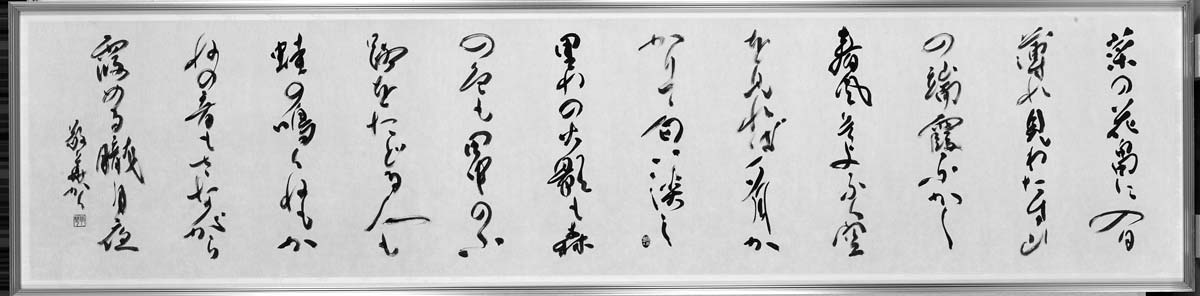 菜の花畠に入日
薄れ見わたす山
の端霞ふかし
春風そよふく空
を見れば夕月か
かりて匂い淡し
里わの火影も森
の色も田中の小
路をたどる人も
蛙の鳴くねもか
ねの音もさながら
霞める朧月夜